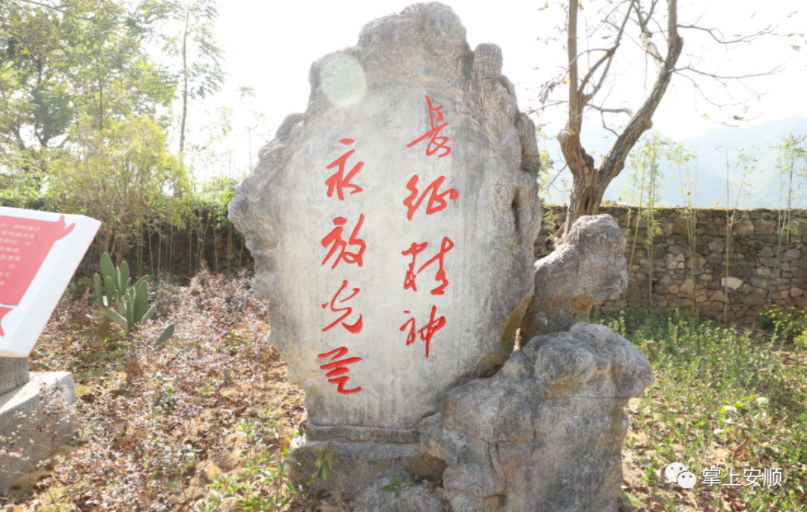 長征精神
永放光芒
掌上安顺